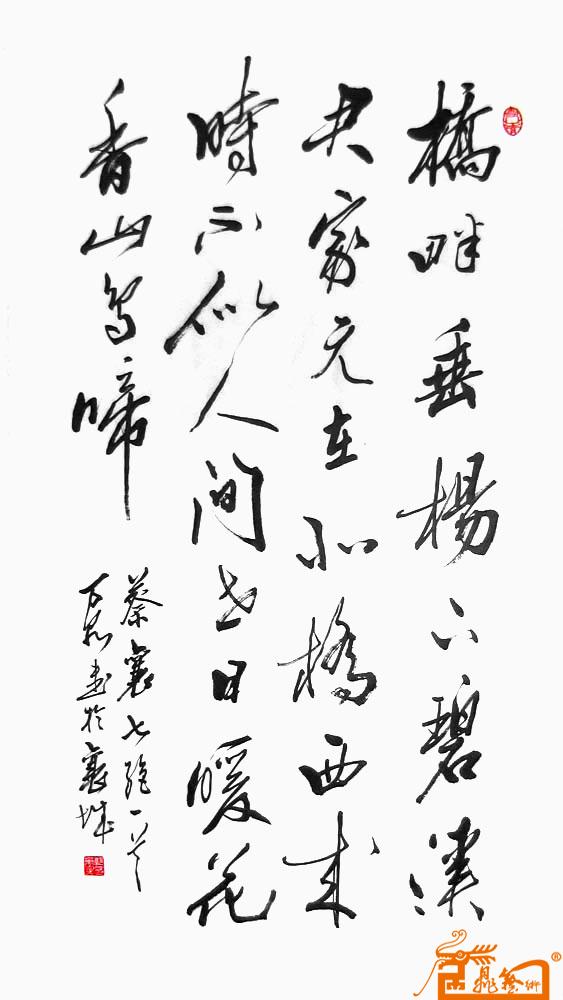 橋畔垂楊下碧溪
君家元在北橋西来
時不似人間世日暖花
香山鳥啼
蔡襄七絕一首
万書於襄城
藝術
®